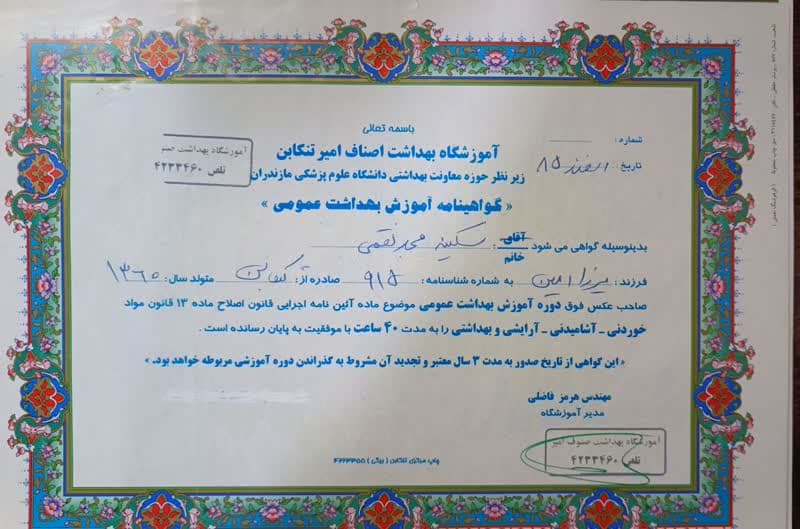 باسمه تعالی
شماره:
آموزشگاه بهداشت اصناف امیر تنکابن
تاریخ: اسفند ۸۵
زیر نظر حوزه معاونت بهداشتی دانشگاه علوم پزشکی مازندران
آموزشگاه بهداشت صنوف
تلفن ۴۲۳۳۴۶۰
« گواهینامه آموزش بهداشت عمومی »
بدینوسیله گواهی می شود آقای خانم : سکینه
فرزند: میرزا امین به شماره شناسنامه: ۹۱۵ صادره از: تنکابن متولد سال: ۱۳۶۰
صاحب عکس فوق دوره آموزش بهداشت عمومی موضوع ماده آئین نامه اجرایی قانون اصلاح ماده ۱۳ قانون مواد
خوردنی _ آشامیدنی _ آرایشی و بهداشتی را به مدت ۴۰ ساعت با موفقیت به پایان رسانده است .
« این گواهی از تاریخ صدور به مدت ۳ سال معتبر و تجدید آن مشروط به گذراندن دوره آموزشی مربوطه خواهد بود. »
مهندس هرمز فاضلی
مدیر آموزشگاه
آموزشگاه بهداشت صنوف امیر
تلفن ۴۲۳۳۴۶۰
چاپ مرکزی تنکابن ( بیگی ) ۴۲۲۳۳۵۵